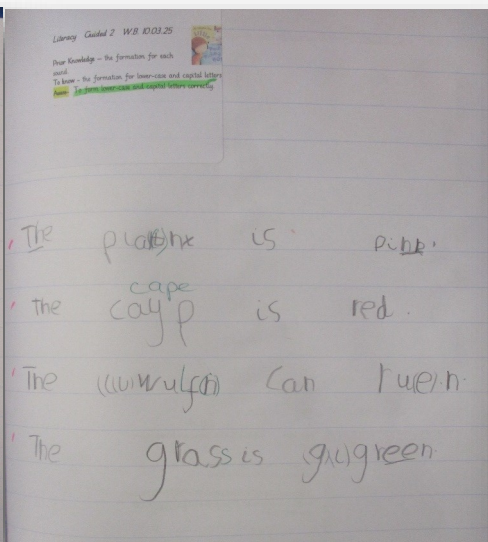 Literacy Guided 2 W.B. 10.03.25
Prior Knowledge – the formation for each
sound.
To know – the formation for lower-case and capital letters
To form lower-case and capital letters correctly.
The is pink.
cape
The cayp is red.
The can ru(e)n.
The grass is green.